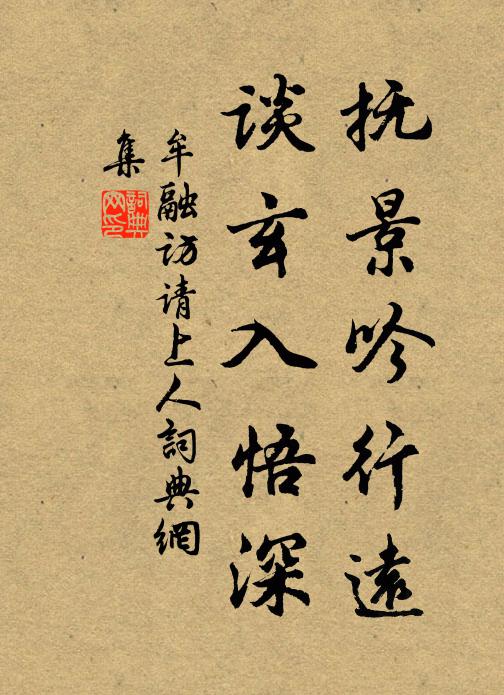 抚景吟行遠
谈玄入悟深
牟融访请上人詞典網
集
詞典
网印